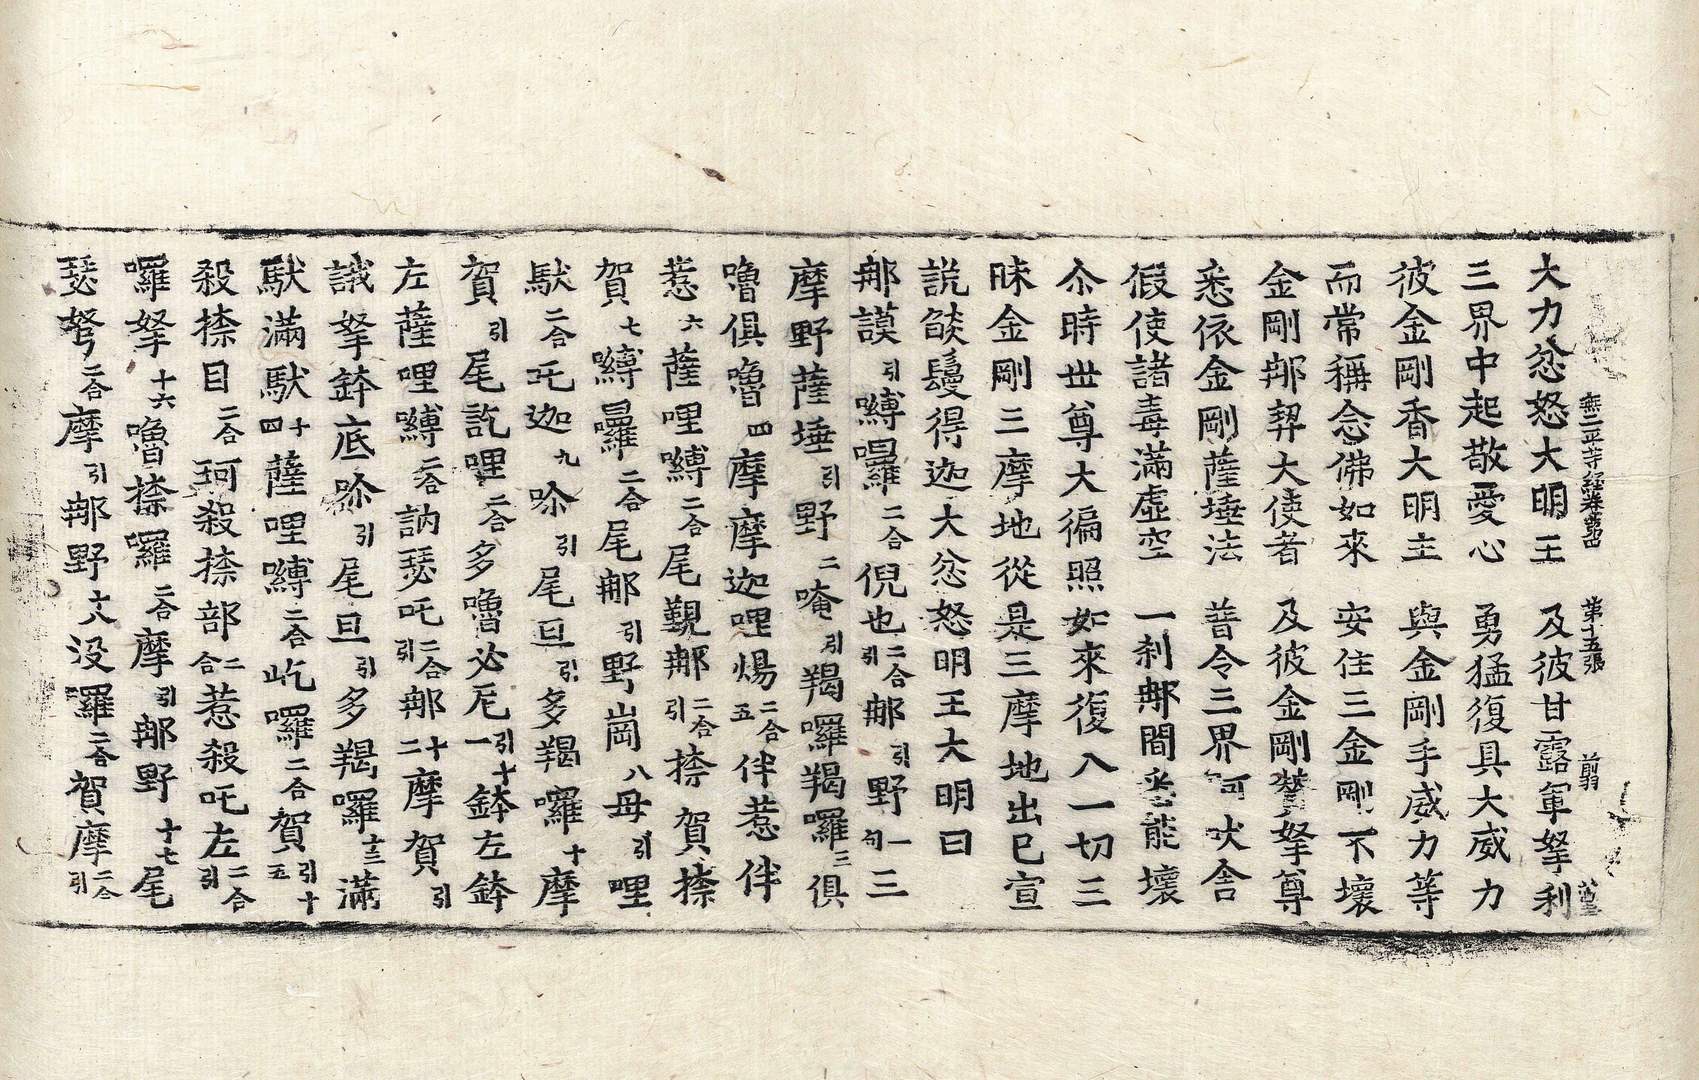 大力忿怒大明王　及彼甘露軍拏利
三界中起敬愛心　勇猛復具大威力
彼金剛香大明主　與金剛手威力等
而常稱念佛如來　安住三金剛不壞
金剛那契大使者　及彼金剛拏尊
悉依金剛薩埵法　普令三界吠舍
假使諸毒滿虛空　一剎那間悉能壞
尒時世尊大徧照如來復入一切三
昧金剛三摩地從是三摩地出已宣
説燄鬘得迦大忿怒明王大明曰
那謨引嚩囉二合倪也二合引那引野一句三
摩野薩埵引野二唵引羯囉羯囉三俱
嚕俱嚕四摩摩迦哩煬二合五伴惹伴
惹六薩哩嚩二合尾覲那二合引捺賀捺
賀七嚩曩二合尾那引野崗八母引哩
馱二合吒迦九哳引尾旦引多羯囉十摩
賀引尾訖哩二合多嚕必尼引十一鉢左鉢
左薩哩嚩二合訥瑟吒二合引那十二摩賀引
誐拏鉢底哳引尾旦引多羯囉十三滿
馱滿馱十四薩哩嚩二合屹囉二合賀引十五
殺捺目二合珂殺捺部二合惹殺吒左二合引
囉拏十六嚕捺囉二合摩引那野十七尾
瑟拏二合摩引那野十八没囉二合賀摩二合引
第十五張